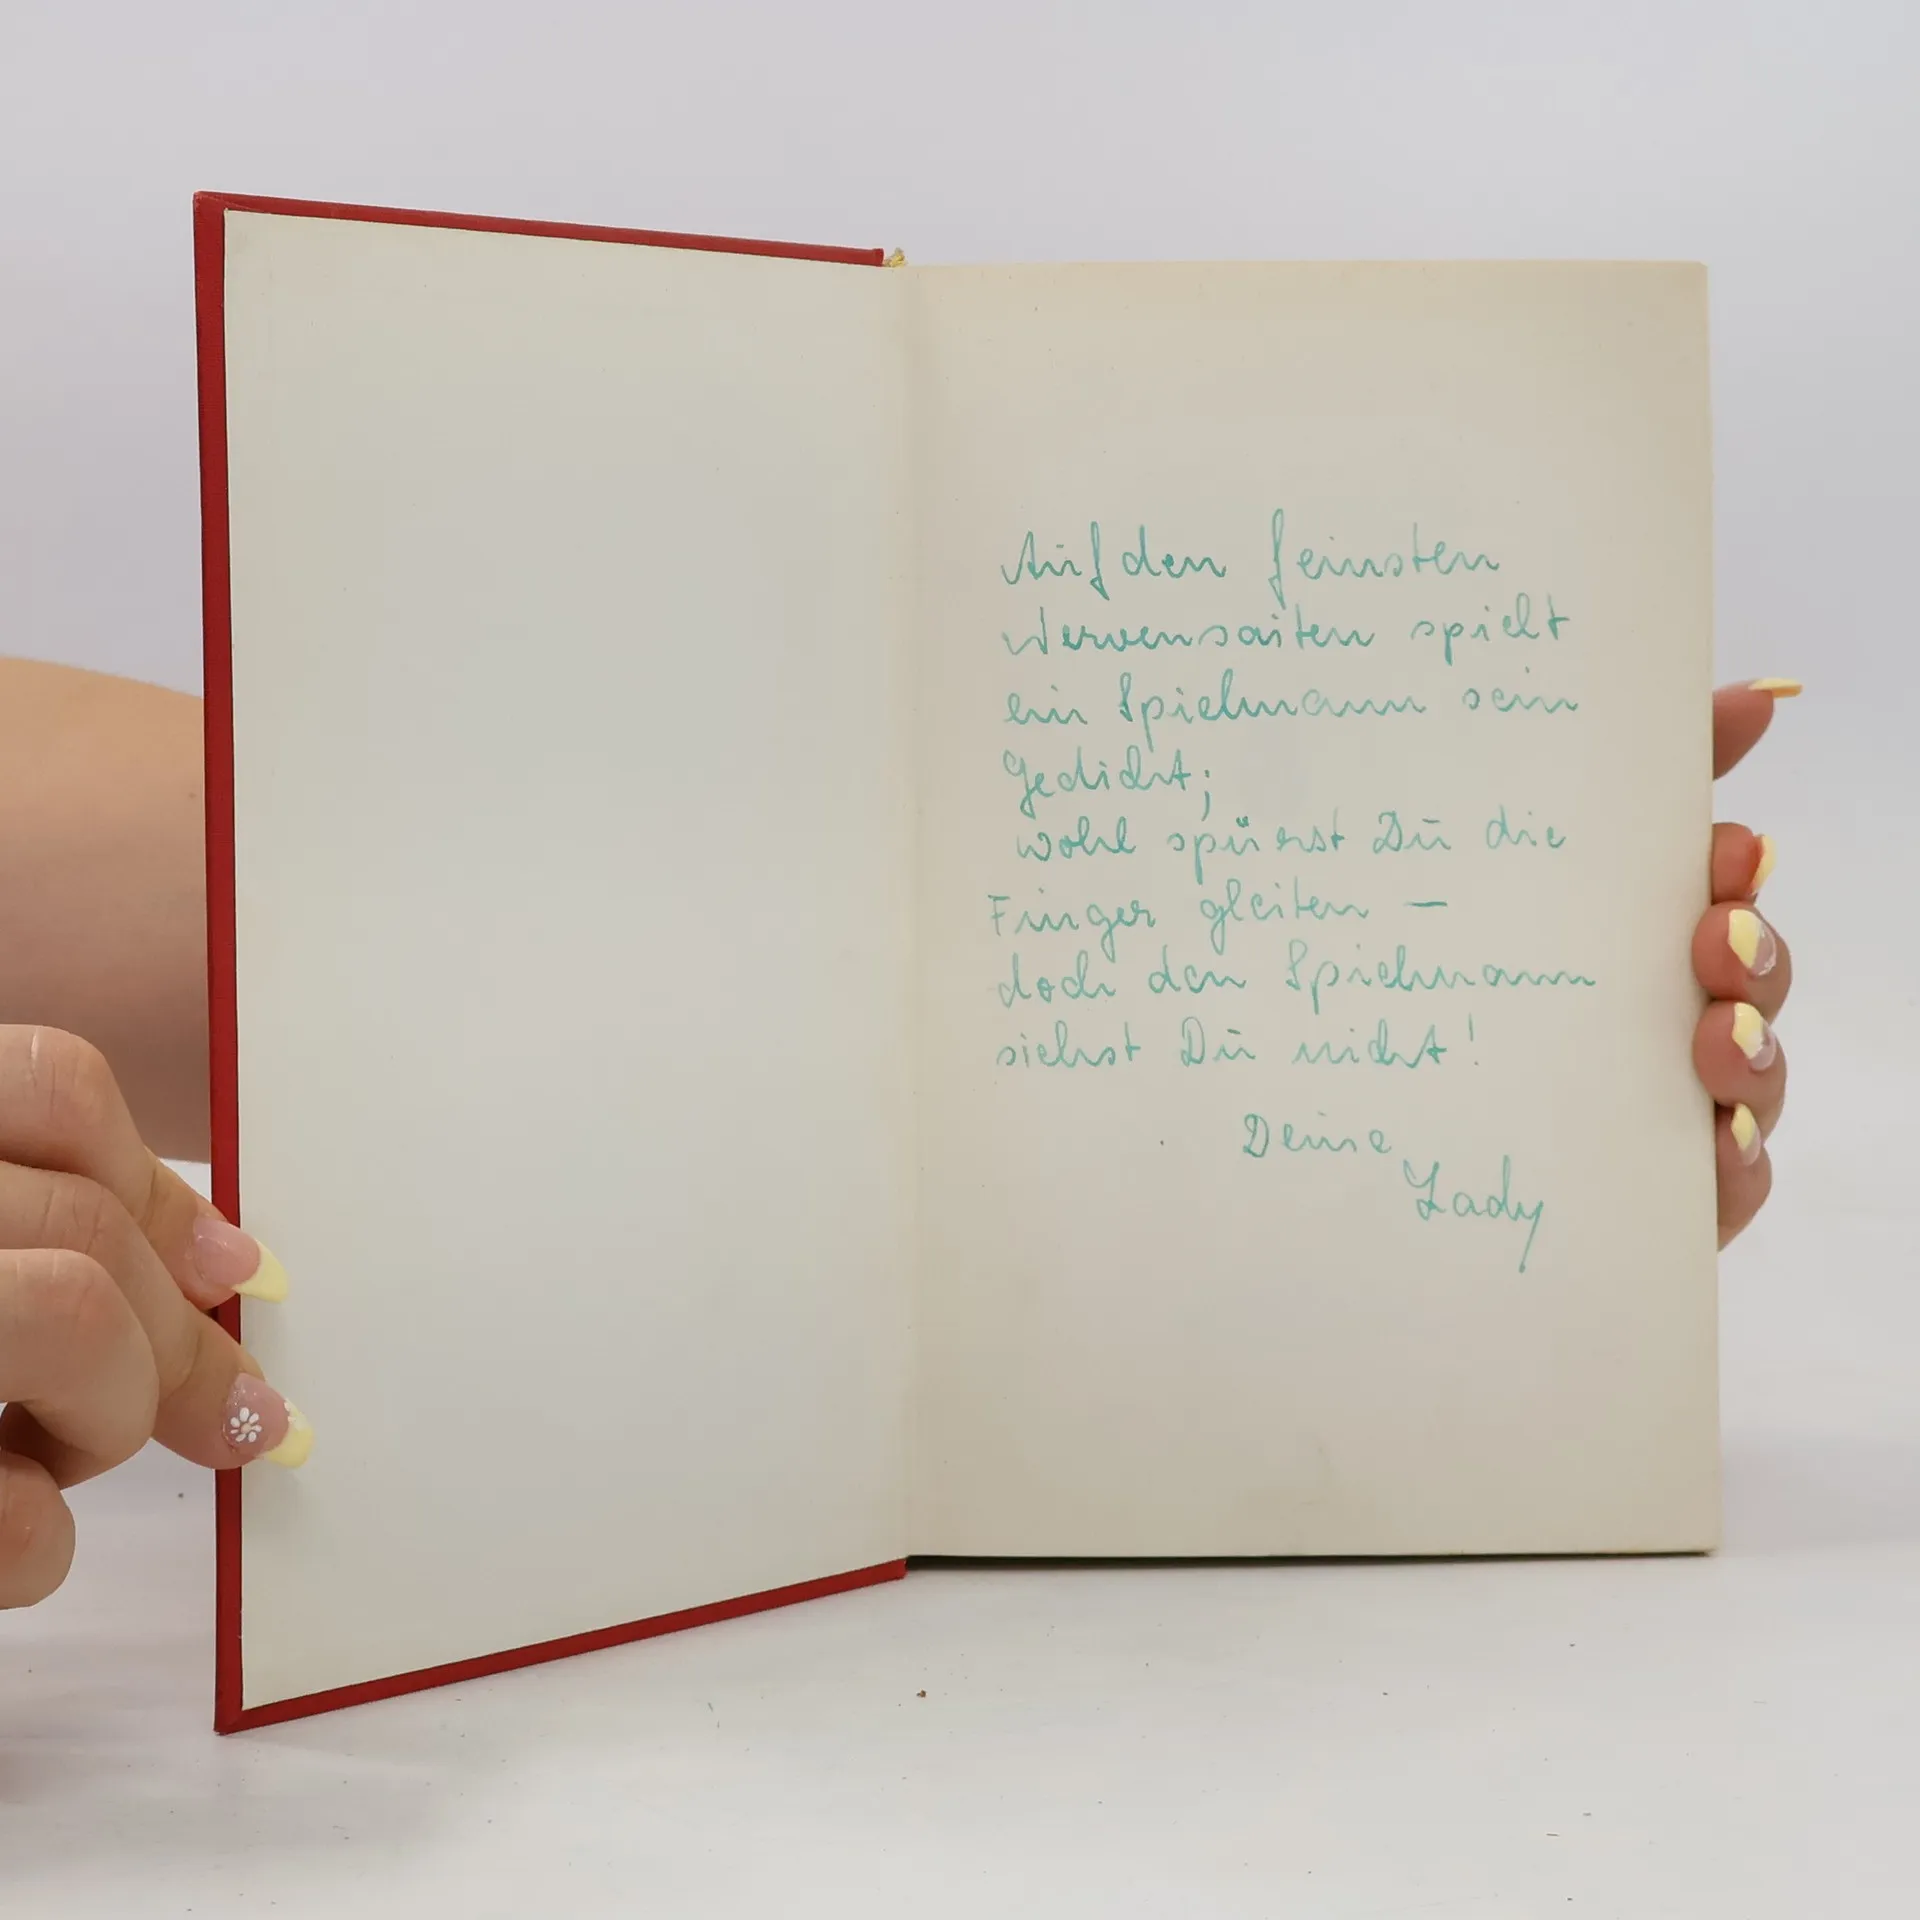 Auf den feinsten
Nervensaiten spielt
ein Spielmann sein
Gedicht;
wohl spürst Du die
Finger gleiten —
doch den Spielmann
siehst Du nicht!
Deine
Lady